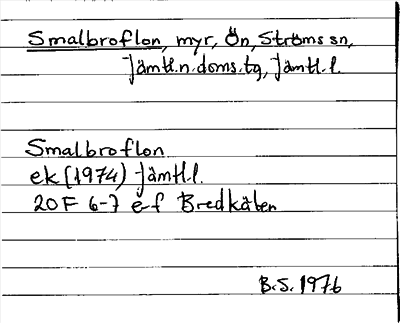 Smalbroflon, myr, Ön, Ströms sn,
Jämtl.n.doms.tg, Jämtl.l.
Smalbroflon
ek (1974) Jämtl.l.
20F 6-7 e-f Bredkälen
B.S. 1976